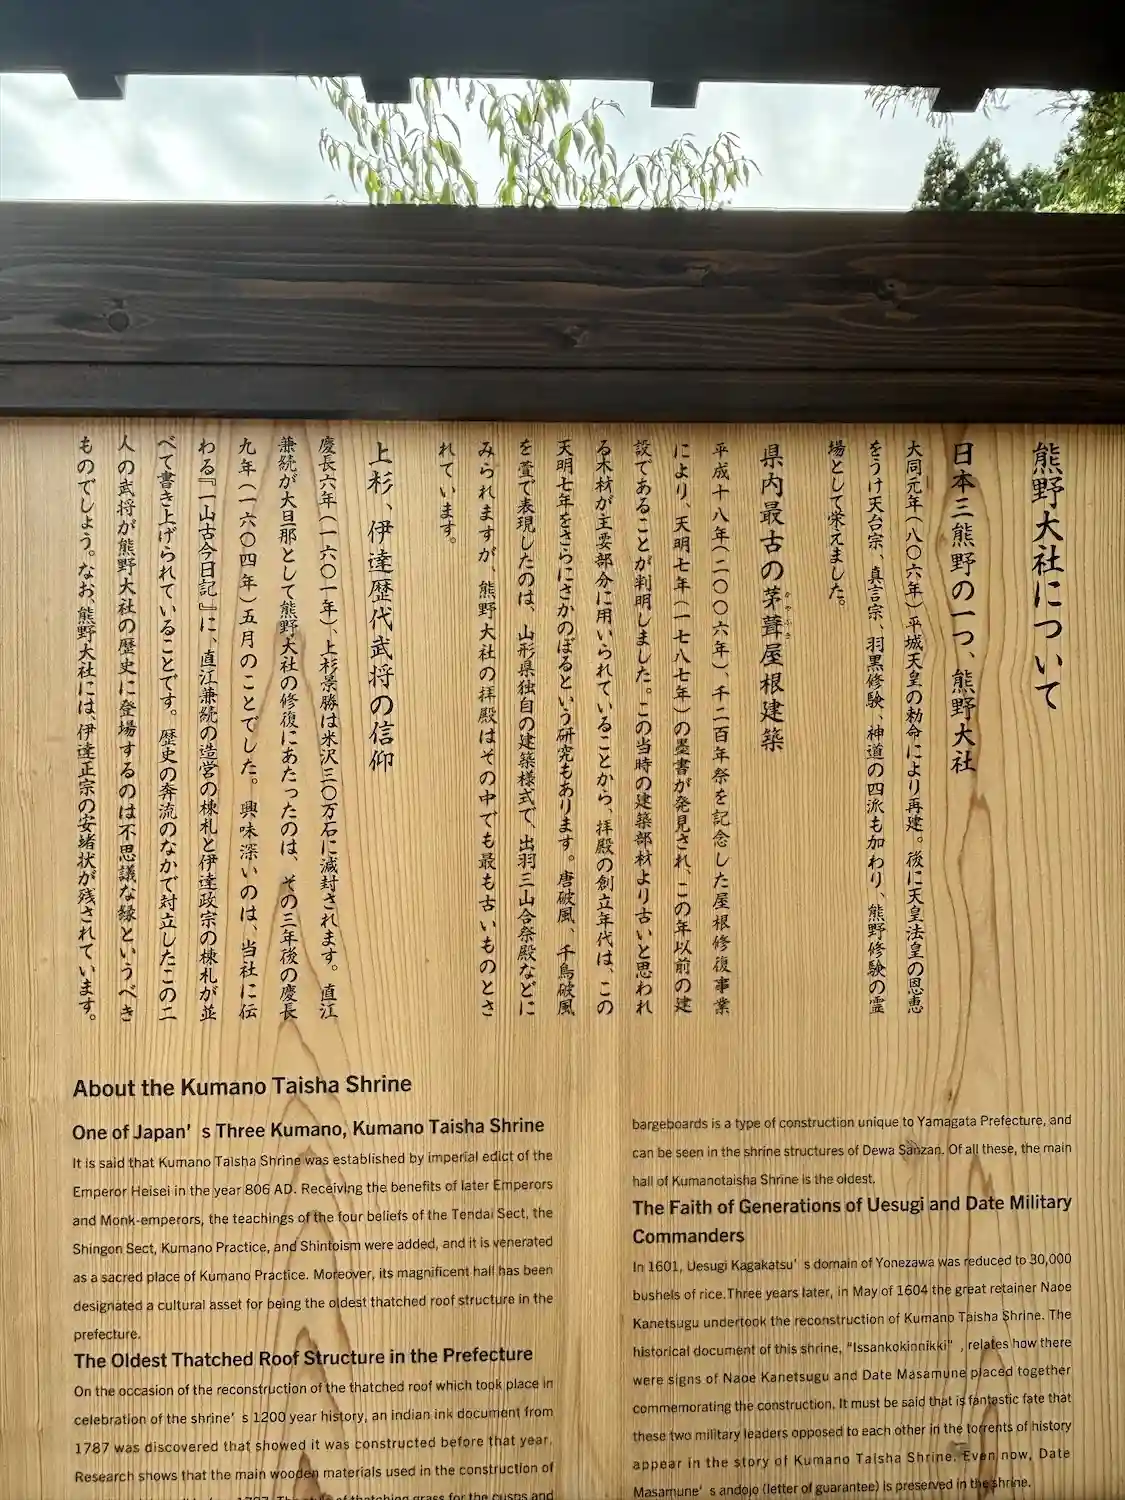 熊野大社について
日本三熊野の一つ、熊野大社
大同元年(八〇六年)平城天皇の勅命により再建。後に天皇法皇の恩恵
をうけ天台宗、真言宗、羽黒修験、神道の四派も加わり、熊野修験の霊
場として栄えました。
県内最古の茅葺屋根建築
かやぶき
平成十八年(二〇〇六年)、千二百年祭を記念した屋根修復事業
により、天明七年(一七八七年)の墨書が発見され、この年以前の建
設であることが判明しました。この当時の建築部材より古いと思われ
る木材が主要部分に用いられていることから、拝殿の創立年代は、この
天明七年をさらにさかのぼるという研究もあります。唐破風、千鳥破風
を萱で表現したのは、山形県独自の建築様式で、出羽三山合祭殿などに
みられますが、熊野大社の拝殿はその中でも最も古いものとさ
れています。
上杉、伊達歴代武将の信仰
慶長六年(一六〇一年)、上杉景勝は米沢三〇万石に減封されます。直江
兼続が大旦那として熊野大社の修復にあたったのは、その三年後の慶長
九年(一六〇四年)五月のことでした。興味深いのは、当社に伝
わる『一山古今日記』に、直江兼続の造営の棟札と伊達政宗の棟札が並
べて書き上げられていることです。歴史の奔流のなかで対立したこの二
人の武将が熊野大社の歴史に登場するのは不思議な縁というべき
ものでしょう。なお、熊野大社には、伊達正宗の安緒状が残されています。
About the Kumano Taisha Shrine
One of Japan's Three Kumano, Kumano Taisha Shrine
It is said that Kumano Taisha Shrine was established by imperial edict of the
Emperor Heisei in the year 806 AD. Receiving the benefits of later Emperors
and Monk-emperors, the teachings of the four beliefs of the Tendai Sect, the
Shingon Sect, Kumano Practice, and Shintoism were added, and it is venerated
as a sacred place of Kumano Practice. Moreover, its magnificent hall has been
designated a cultural asset for being the oldest thatched roof structure in the
prefecture.
The Oldest Thatched Roof Structure in the Prefecture
On the occasion of the reconstruction of the thatched roof which took place in
celebration of the shrine's 1200 year history, an indian ink document from
1787 was discovered that showed it was constructed before that year.
Research shows that the main wooden materials used in the construction of
of thatching grass for the cusps and
bargeboards is a type of construction unique to Yamagata Prefecture, and
can be seen in the shrine structures of Dewa Sanzan. Of all these, the main
hall of Kumanotaisha Shrine is the oldest.
The Faith of Generations of Uesugi and Date Military
Commanders
In 1601, Uesugi Kagakatsu's domain of Yonezawa was reduced to 30,000
bushels of rice.Three years later, in May of 1604 the great retainer Naoe
Kanetsugu undertook the reconstruction of Kumano Taisha Shrine. The
historical document of this shrine, "Issankokinnikki", relates how there
were signs of Naoe Kanetsugu and Date Masamune placed together
commemorating the construction. It must be said that is fantastic fate that
these two military leaders opposed to each other in the torrents of history
appear in the story of Kumano Taisha Shrine. Even now, Date
Masamune's andojo (letter of guarantee) is preserved in the shrine.